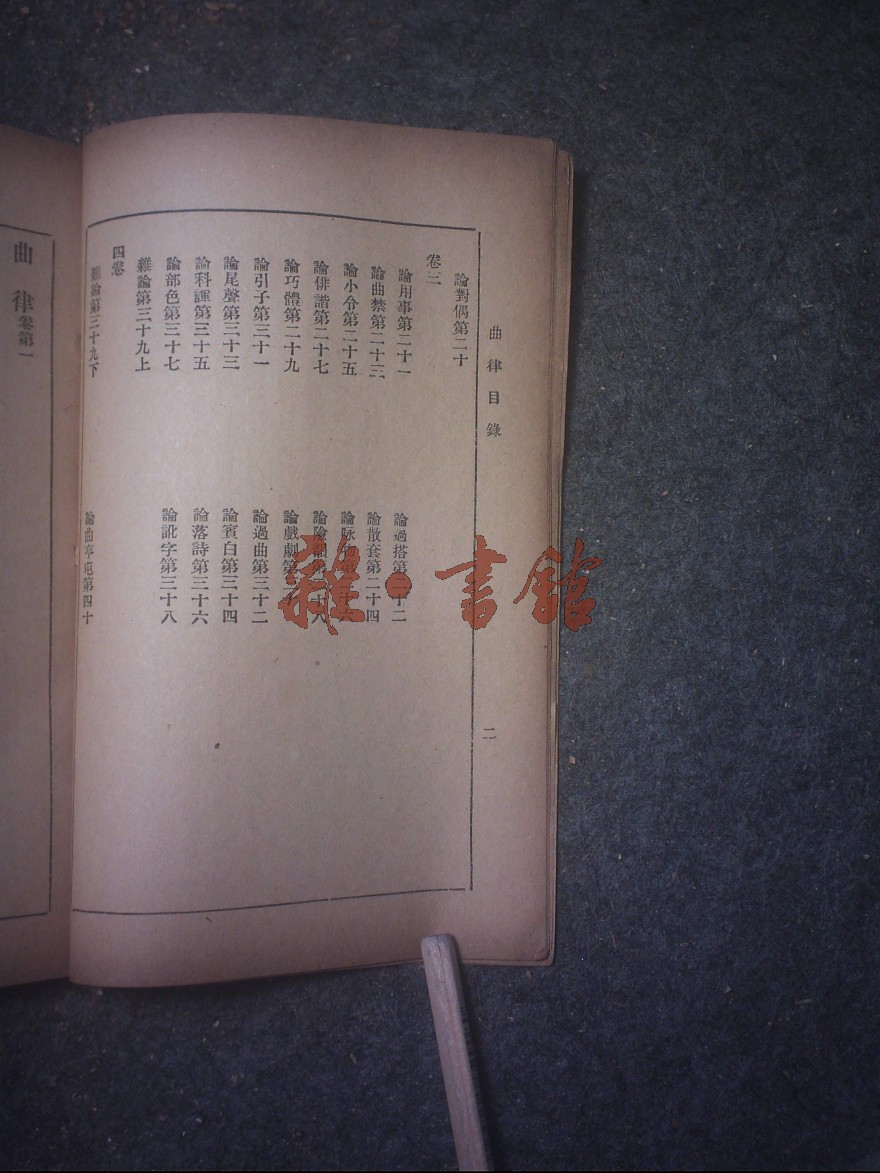 曲律目錄
二
論對偶第二十
卷三
論用事第二十一
論過搭第二十二
論曲禁第二十三
論散套第二十四
論小令第二十五
論詠物第二十六
論俳諧第二十七
論險韻第二十八
論巧體第二十九
論戲劇第三十
論引子第三十一
論過曲第三十二
論尾聲第三十三
論賓白第三十四
論科諢第三十五
論落詩第三十六
論部色第三十七
論訛字第三十八
雜論第三十九上
四卷
雜論第三十九下
論曲亨屯第四十
曲律卷第一
雜·書館